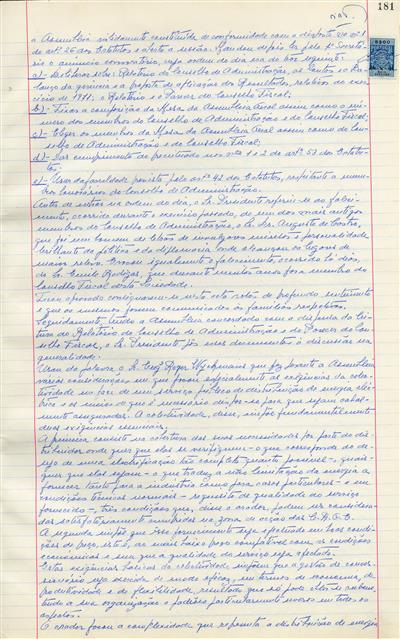 181
a Assembleia validamente constituída de conformidade com o disposto no nº 1
do artº 26 dos Estatutos e aberta a sessão. Mandou depois ler pelo 1º Secretá-
rio o anúncio convocatório, cuja ordem do dia era do teor seguinte:
a) - Deliberar sobre o Relatório do Conselho de Administração, as Contas e o Ba-
lanço da gerência e a proposta de aplicação dos Resultados, relativos ao exer-
cício de 1971, o Relatório e o Parecer do Conselho Fiscal;
b) - Fixar a composição da Mesa da Assembleia Geral assim como o nú-
mero dos membros do Conselho de Administração e do Conselho Fiscal;
c) - Eleger os membros da Mesa da Assembleia Geral assim como do Con-
selho de Administração e do Conselho Fiscal;
d) - Dar cumprimento ao preceituado nos nºs 1 e 2 do artº 53 dos Estatu-
tos;
e) - Usar da faculdade prevista pelo artº 42 dos Estatutos, respeitante a mem-
bros honorários do Conselho de Administração.
Antes de entrar na ordem do dia, o Sr. Presidente referiu-se ao faleci-
mento, ocorrido durante o exercício passado, de um dos mais antigos
membros do Conselho de Administração, o Sr. Dr. Augusto de Castro,
que foi um homem de letras de invulgares méritos e personalidade
brilhante da política e da diplomacia, onde alcançou os lugares de
maior relevo. Evocou igualmente o falecimento, ocorrido há dias,
do Sr. Emile Rodigas, que durante muitos anos fora membro do
Conselho Fiscal desta Sociedade.
Ficou aprovado consignarem-se nesta acta votos de profundo sentimento
e que os mesmos fossem comunicados às famílias respectivas.
Seguidamente, tendo a Assembleia concordado com a dispensa da lei-
tura do Relatório do Conselho de Administração e do Parecer do Con-
selho Fiscal, o Sr. Presidente pôs esses documentos à discussão na
generalidade.
Usou da palavra o Sr. Engº Roger Wyckmans que fez perante a Assembleia
várias considerações em que focou especialmente as exigências da colec-
tividade em face de um serviço público de distribuição de energia eléc-
trica e os meios de que é necessário dispor-se para que sejam cabal-
mente asseguradas. A colectividade, disse, impõe fundamentalmente
duas exigências essenciais.
A primeira, consiste na cobertura das suas necessidades por parte do dis-
tribuidor onde quer que elas se verifiquem - o que corresponde ao de-
sejo de uma electrificação tão completa quanto possível - quais-
quer que elas sejam - o que traduz a não limitação da energia a
fornecer tanto para a indústria como para casos particulares - e em
condições técnicas normais - requisito de qualidade do serviço
fornecido -, três condições que, disse o orador, podem ser conside-
radas satisfatoriamente cumpridas na zona de acção das C.R.G.E.
A segunda impõe que esse fornecimento seja efectuado em boas condi-
ções de preço, isto é, ao mais baixo preço compatível com as condições
económicas e sem que a qualidade do serviço seja afectada.
Estas exigências básicas da colectividade impõem que a gestão do conces-
sionário seja exercida de modo eficaz, em termos de economia, de
produtividade e de flexibilidade, resultado que só pode obter-se reben-
tando a sua organização e padrões particularmente severos em todos os
aspectos.
O orador focou a complexidade que representa a distribuição de energia